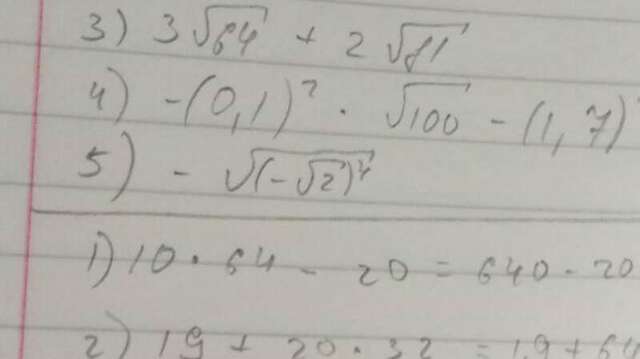 3) 3√64 + 2√81
4) -(0,1)² · √100 - (1,7)
5) - √(-√2)⁴
1) 10 · 64 - 20 = 640 - 20
2) 19 + 20 · 32 = 19 + 64